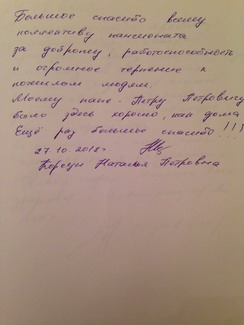 Большое спасибо всему
коллективу пансионата
за доброту, работоспособность
и огромное терпение к
пожилым людям.
Моему папе - Петру Петровичу
было здесь хорошо, как дома
Ещё раз большое спасибо!!!
27.10.2018г
Наталья Петровна